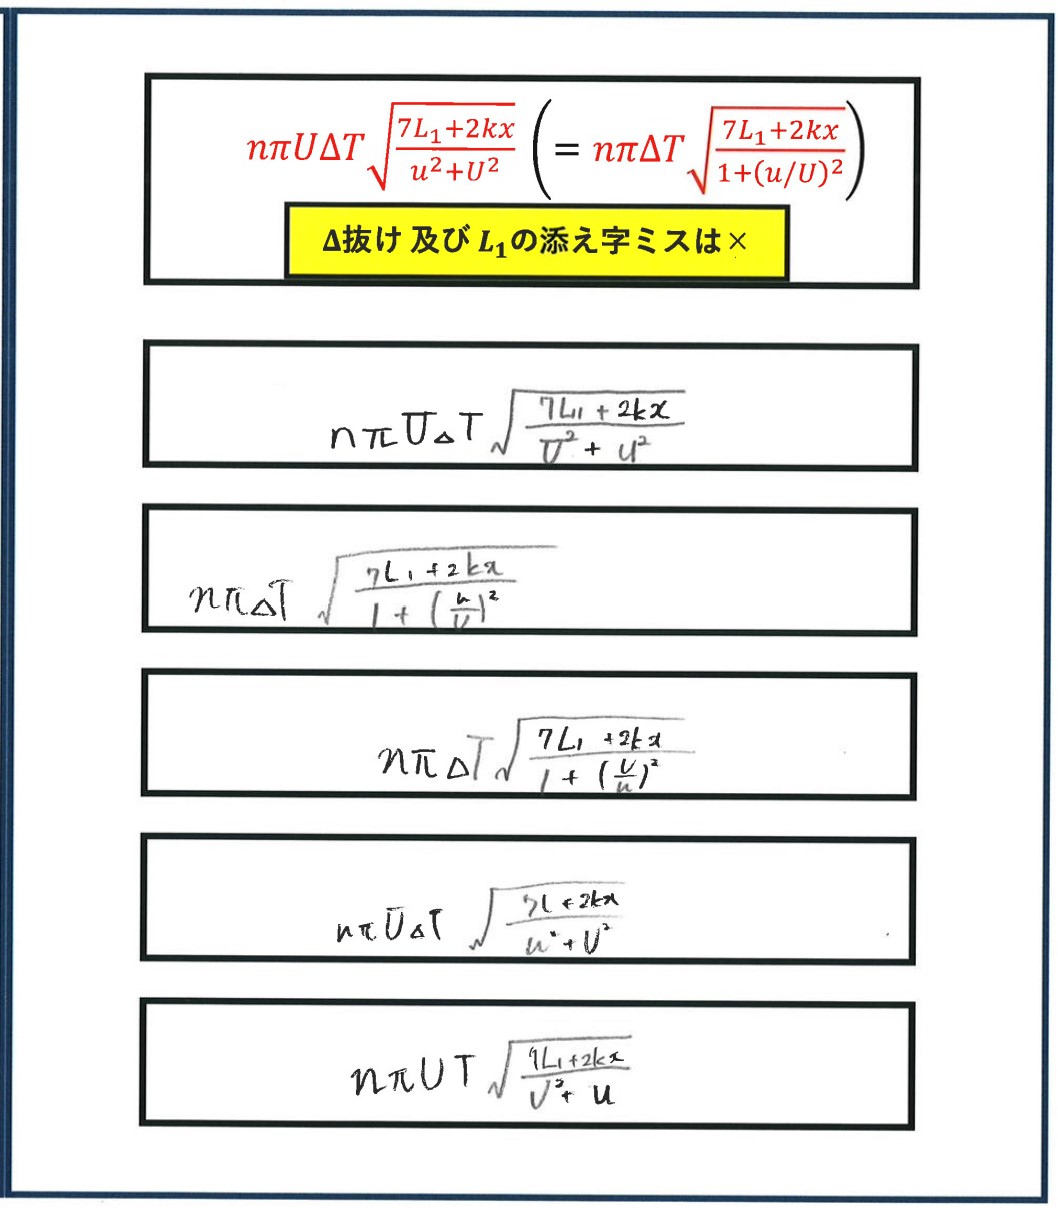 nπUΔT√((7L₁+2kx)/(u²+U²)) (= nπΔT√((7L₁+2kx)/(1+(u/U)²)))
Δ抜け 及び L₁の添え字ミスは×
nπUΔT√((7L₁₁+2kx)/(U²+u²))
nπΔT√((7L₁+2kx)/(1+(u/U)²))
nπΔT√((7L₁+2kx)/(1+(U/u)²))
nπUΔT√((7L+2kx)/(u²+U²))
nπUT√((9L₁+2kx)/(U²+u))